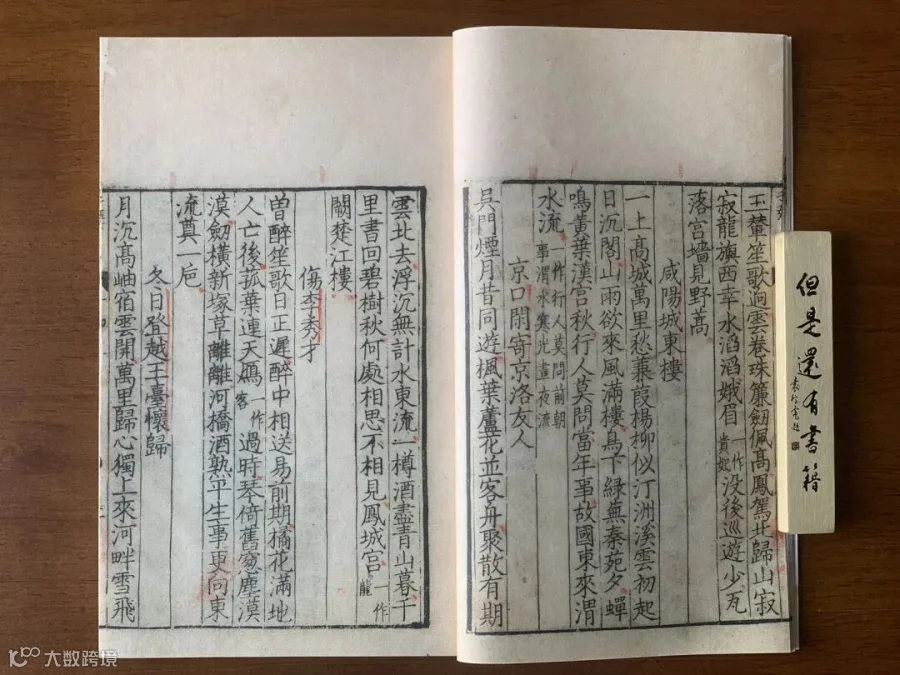 玉輦笙歌迥雲卷珠簾劒佩高鳳駕北歸山寂
寂龍旗西幸水滔滔娥眉一作貴妃没後巡遊少瓦
落宫墻見野蒿
咸陽城東樓
一上高城萬里愁蒹葭楊柳似汀洲溪雲初起
日沉閣山雨欲來風滿樓鳥下緑蕪秦苑夕蟬
鳴黄葉漢宫秋行人莫問當年事故國東來渭
水流一作行人莫問前朝事渭水寒光晝夜流
京口閑寄京洛友人
吳門煙月昔同遊楓葉蘆花並客舟聚散有期
雲北去浮沉無計水東流一樽酒盡青山暮千
里書回碧樹秋何處相思不相見鳳城宫一作龍
闕楚江樓
傷李秀才
曽醉笙歌日正遲醉中相送易前期橘花滿地
人亡後菰葉連天鴈一作客過時琴倚舊窓塵漠
漠劒橫新塚草離離河橋酒熟平生事東向東
流奠一巵
冬日登越王臺懷歸
月沉高岫宿雲開萬里歸心獨上來河畔雪飛
但是還有書籍
大数跨境